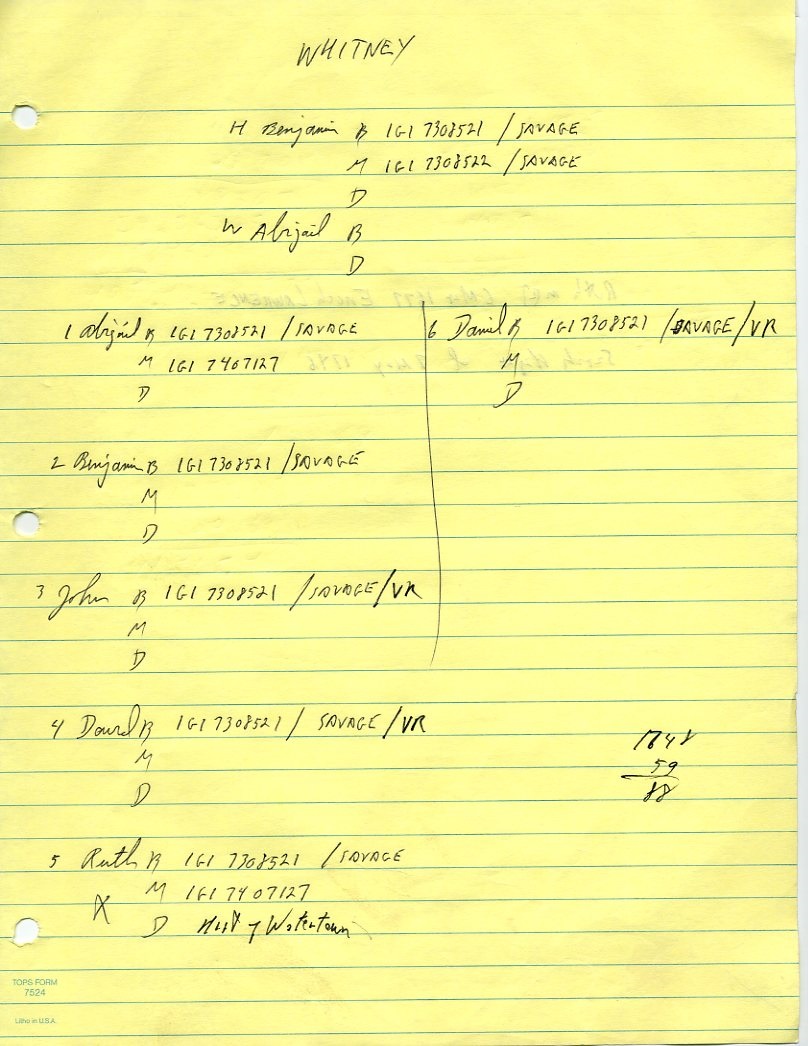 WHITNEY
H Benjamin B IGI 7308521 / SAVAGE
M IGI 7308522 / SAVAGE
D
W Abigail B
D
1 Abigail B IGI 7308521 / SAVAGE
M IGI 7407127
D
2 Benjamin B IGI 7308521 / SAVAGE
M
D
3 John B IGI 7308521 / SAVAGE / VR
M
D
4 David B IGI 7308521 / SAVAGE / VR
M
D
5 Ruth B IGI 7308521 / SAVAGE
X M IGI 7407127
D Hist of Watertown
6 Daniel B IGI 7308521 / SAVAGE / VR
M
D
1648
59
88
TOPS FORM
7524
Litho in U.S.A.